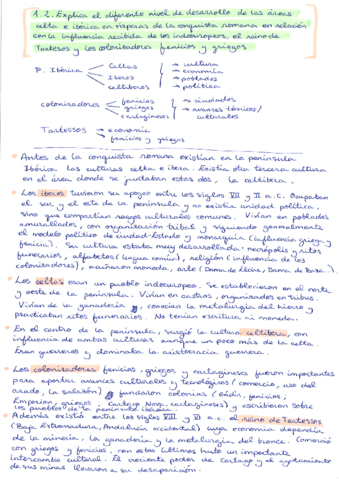 1.2. Explica el diferente nivel de desarrollo de las áreas
celta e ibérica en vísperas de la conquista romana en relación
con la influencia recibida de los indoeuropeos, el reino de
Tartessos y los colonizadores fenicios y griegos
P. Ibérica
Celtas
Iberos
celtíberos
→ cultura
→ economía
→ poblados
→ política
colonizadores
fenicios
griegos
cartagineses
→ ciudades
→ avances técnicos/
culturales
Tartessos
→ economía
→ fenicios y griegos
Antes de la conquista romana existían en la península
Ibérica las culturas celta e íbera. Existía otra tercera cultura
en el área donde se juntaban estas dos, la celtíbera.
Los iberos tuvieron su apogeo entre los siglos VII y II a.C. Ocupaban
el sur y el este de la península y no existía unidad política,
sino que compartían rasgos culturales comunes. Vivían en poblados
amurallados, con organización tribal y siguiendo generalmente
el modelo político de ciudad-Estado y monarquía (influencia griega y
fenicia). Su cultura estaba muy desarrollada: necrópolis y ritos
funerarios, alfabetos (lengua común), religión (influencia de los
colonizadores), acuñaron moneda, arte (Dama de Elche, Dama de Baza...).
Los celtas eran un pueblo indoeuropeo. Se establecieron en el norte
y oeste de la península. Vivían en castros, organizados en tribus.
Vivían de la ganadería, conocían la metalurgia del hierro y
practicaban ritos funerarios. No tenían escritura ni moneda.
En el centro de la península, surgió la cultura celtíbera, con
influencia de ambas culturas aunque un poco más de la celta.
Eran guerreros y dominaba la aristocracia guerrera.
Los colonizadores fenicios, griegos y cartagineses fueron importantes
para aportar avances culturales y tecnológicos (comercio, uso del
arado, la salazón), fundaron colonias (Gádir, fenicios;
Emporion, griegos; Cartago Nova, cartagineses) y escribieron sobre
los pueblos de la península ibérica.
Además existió entre los siglos VIII y VI a.C. el reino de Tartessos
(Baja Extremadura, Andalucía occidental) cuya economía dependía
de la minería, la ganadería y la metalurgia del bronce. Comerció
con griegos y fenicios, con estos últimos hubo un importante
intercambio cultural. El creciente poder de Cartago y el agotamiento
de sus minas llevaron a su desaparición.